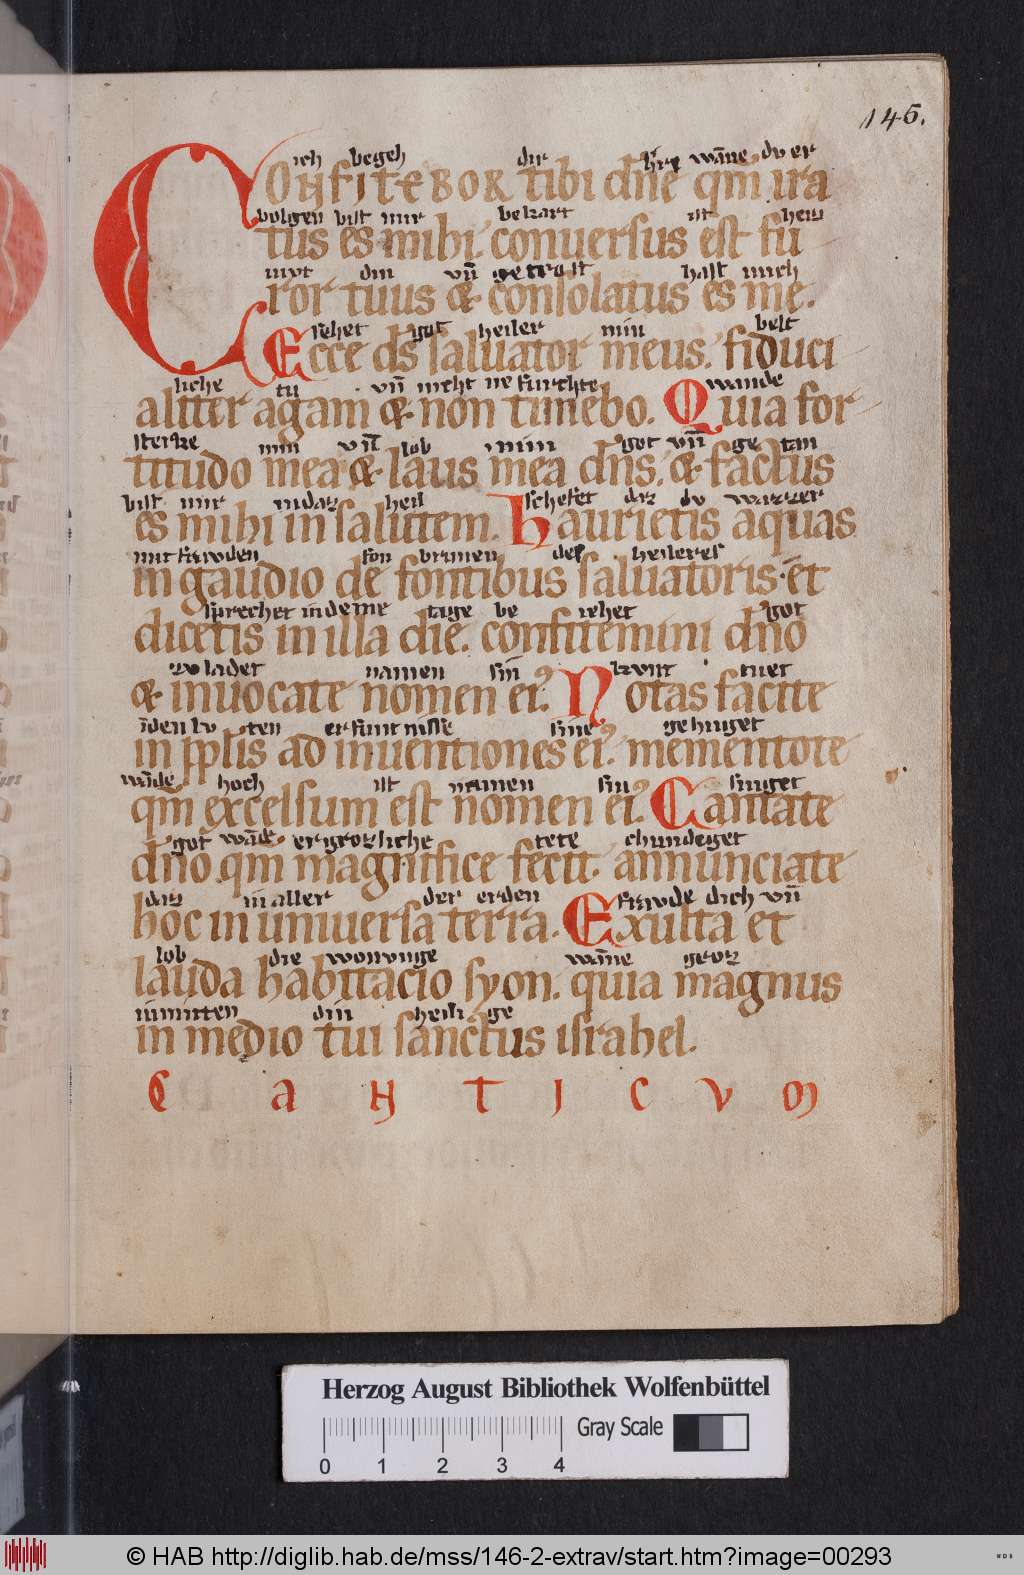 146.
ich begeh dir h're wāne du er
CONFITEBOR tibi dn̄e qm̄ ira
bolgen bist mir bekart ist hein
tus es mihi. conuersus est fu
mut din vn̄ getrost hast mich
ror tuus & consolatus es me.
sehet got heiler min belt
Ecce ds̄ saluator meus. fiduci
liche tu vn̄ nicht ne furchte wande
aliter agam & non timebo. Quia for-
sterke min vn̄ lob min got vn̄ ge tan
titudo mea & laus mea dn̄s. & factus
bist mir indaz heil schefet daz du wazzer
es mihi in salutem. Haurietis aquas
mit frawden fon brunnen des heileres
in gaudio de fontibus saluatoris. et
sprechet in deme tage be iehet got
dicetis in illa die. confitemini dn̄o
zu ladet namen sin kunt tuet
& inuocate nomen ei'. Notas facite
īden lu ten erfunt nisse sine gehuget
in pplis ad inuentiones ei'. mementote
wāde hoch ist namen sin singet
qm̄ excelsum est nomen ei'. Cantate
got wāde ergrozliche tete chundeget
dn̄o qm̄ magnifice fecit. annunciate
daz in aller der erden frawde dich vn̄
hoc in uniuersa terra. Exulta et
lob die wonunge wāne groz
lauda habitacio syon. quia magnus
inmitten din heili ge
in medio tui sanctus israhel.
CANTICUM
Herzog August Bibliothek Wolfenbüttel
0 1 2 3 4 Gray Scale
© HAB http://diglib.hab.de/mss/146-2-extrav/start.htm?image=00293